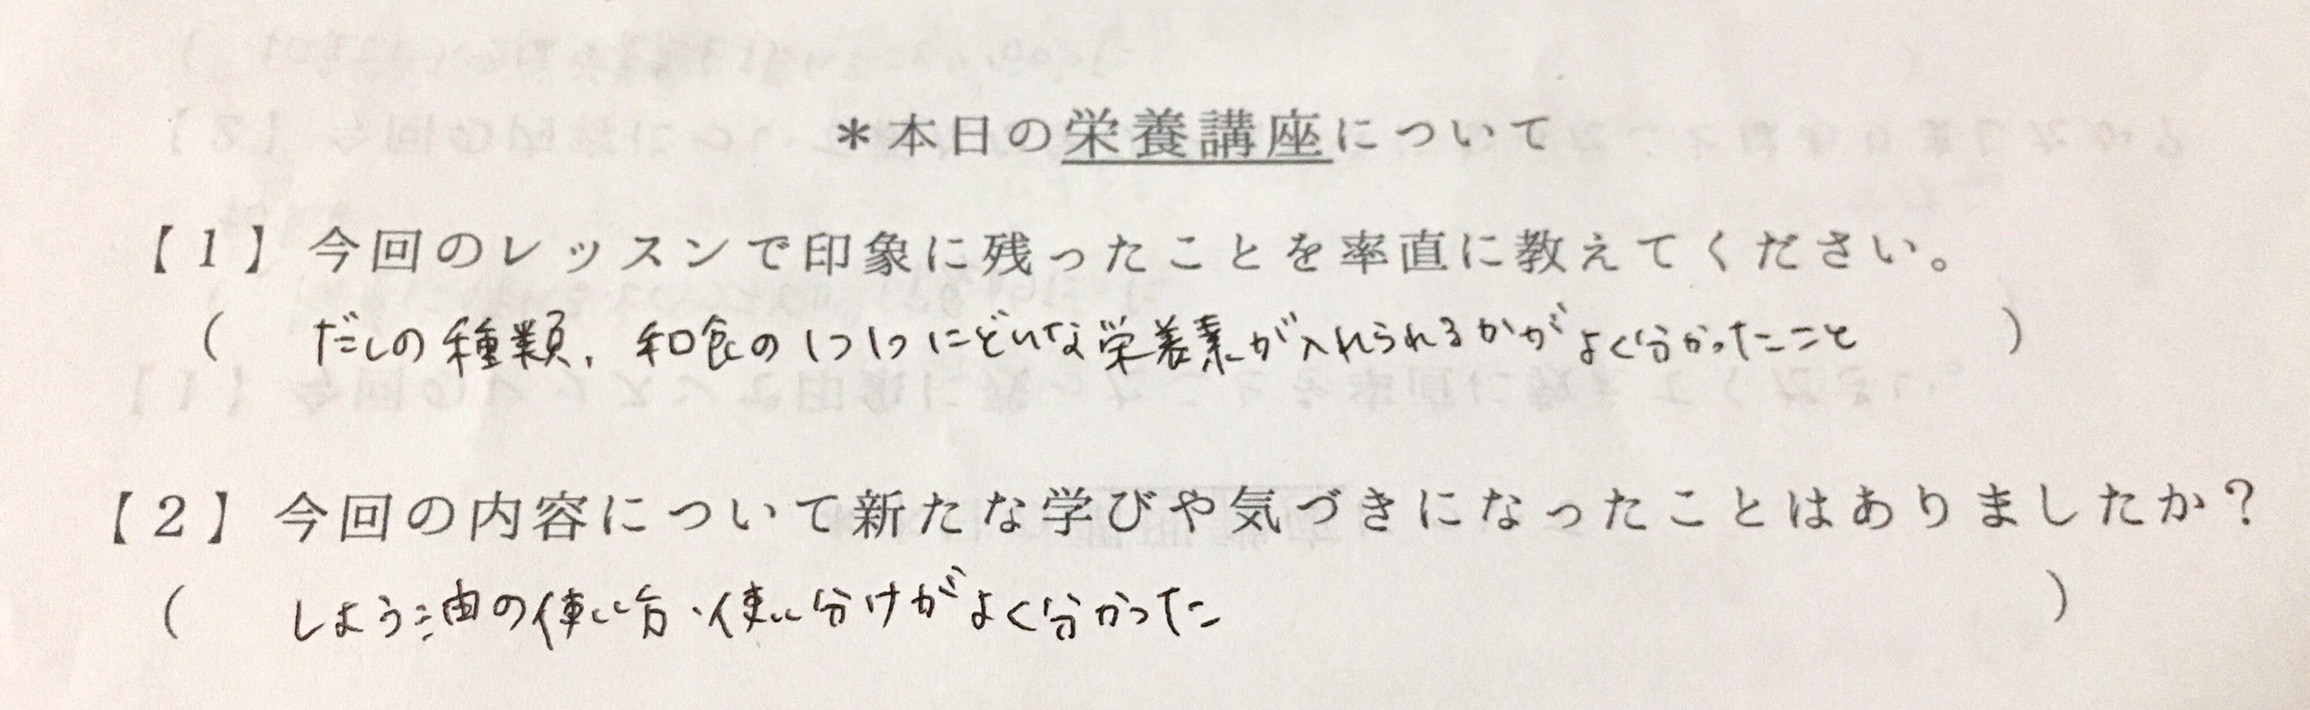 ＊本日の栄養講座について
【１】今回のレッスンで印象に残ったことを率直に教えてください。
（ だしの種類、和食の1つ1つにどんな栄養素が入れられるかがよく分かったこと ）
【２】今回の内容について新たな学びや気づきになったことはありましたか？
（ しょう油の使い方・使い分けがよく分かった ）